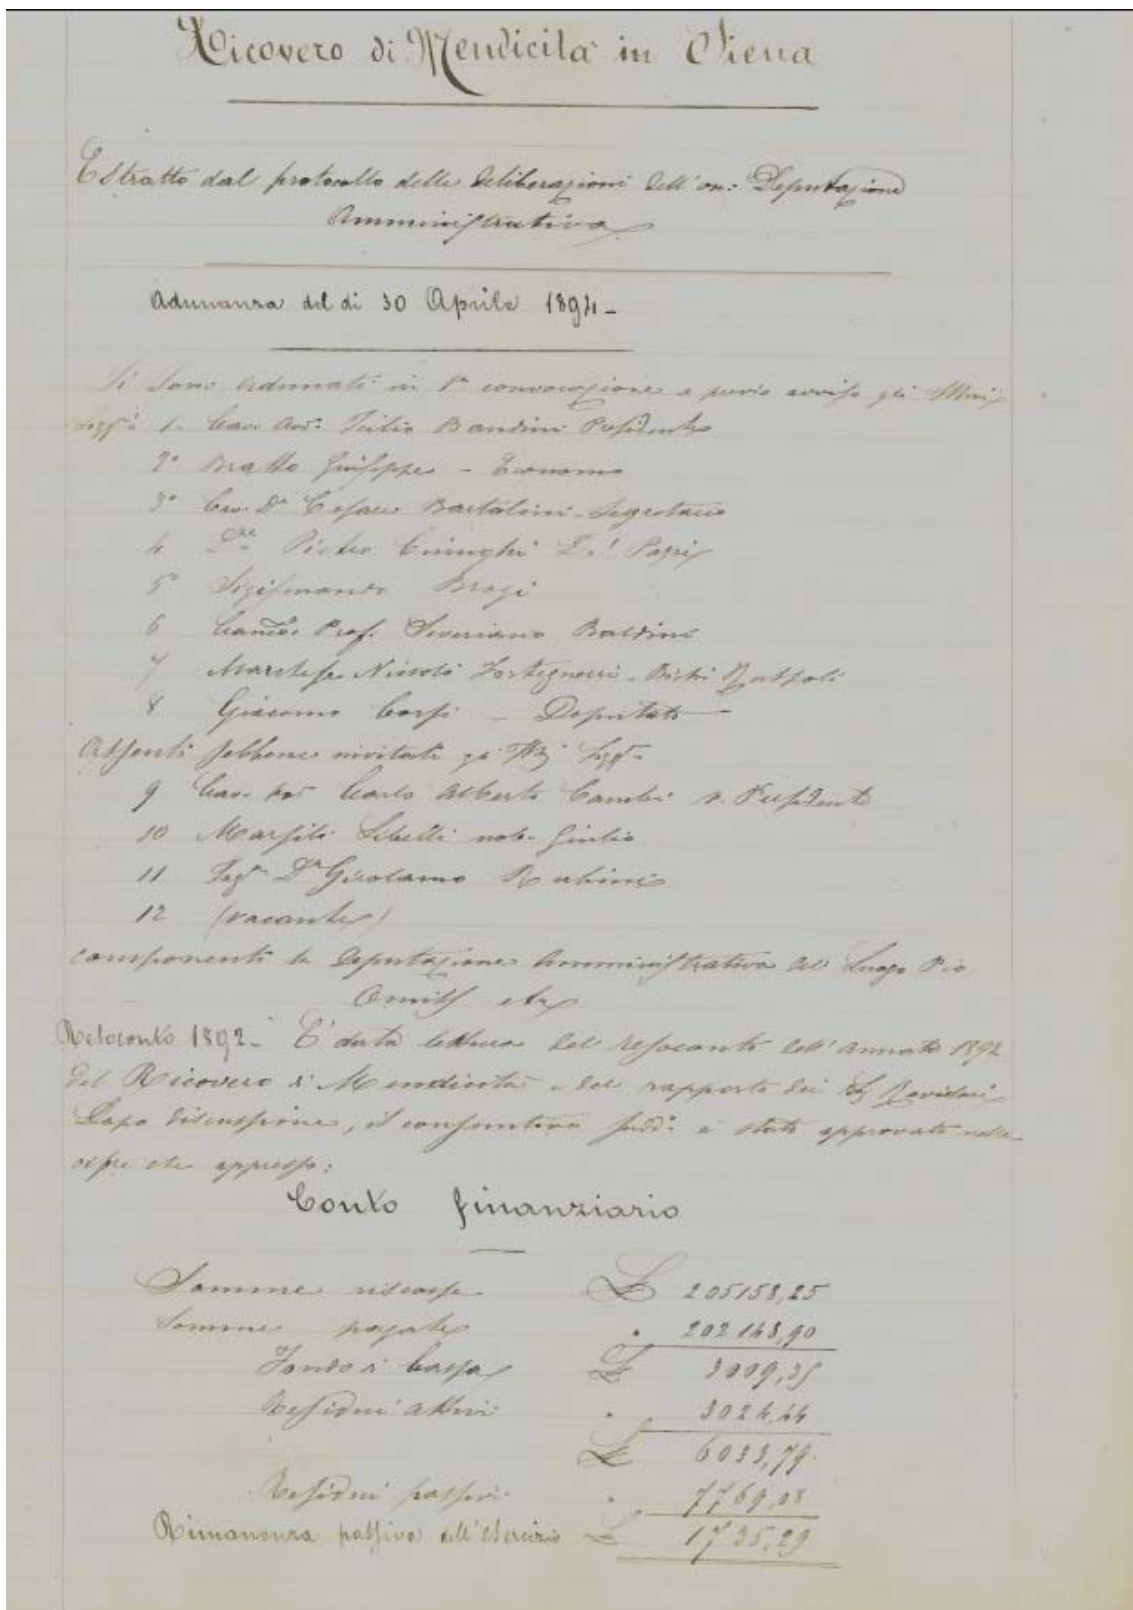 Ricovero di Mendicità in Siena
Estratto dal protocollo delle deliberazioni dell'on: Deputazione
Amministrativa
Adunanza del di 30 Aprile 1894 -
Si sono adunati in 1ª convocazione e previo avviso gli
1. Cav. Avv. Tulio Bandini Presidente
2º Bratto Giuseppe - Economo
3º Cav. Dr Cesare Bartalini - Segretario
4 Pietro De' Pazzi
5º Sigismondo Brogi
6 Prof. Severiano Baldini
7 Marchese Niccolò
8 Giacomo Corsi - Deputato
Assenti sebbene invitati gli
9 Cav. Carlo Alberto Cambi v. Presidente
10 Marsili Libelli nob. Giulio
11 Girolamo Rubini
12 (vacante)
componenti la Deputazione Amministrativa del Luogo Pio
Omiss etc
Resoconto 1892 - E' data lettura del resoconto dell'annata 1892
del Ricovero di Mendicità e del rapporto dei Revisori
Dopo discussione, il consuntivo sudd: è stato approvato nelle
che appresso:
Conto finanziario
Somme riscosse £ 205158,25
Somme pagate " 202148,90
Fondo di Cassa £ 3009,35
Residui attivi " 3024,44
£ 6033,79
Residui passivi " 7769,08
Rimanenza passiva dell'esercizio £ 1735,29